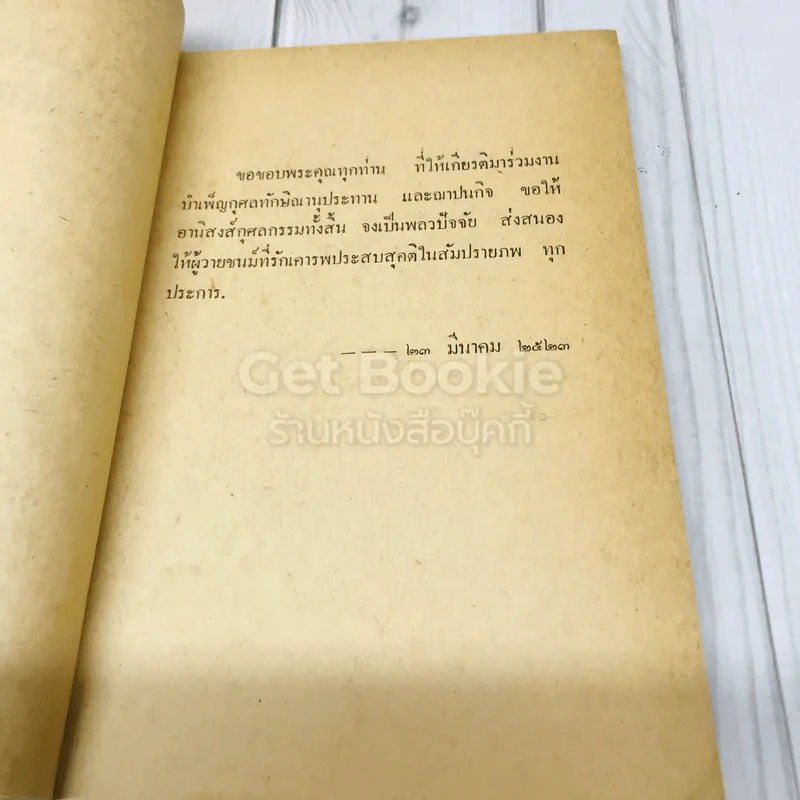 ขอขอบพระคุณทุกท่าน ที่ให้เกียรติมาร่วมงาน
บำเพ็ญกุศลทักษิณานุประทาน และฌาปนกิจ ขอให้
อานิสงส์กุศลกรรมทั้งสิ้น จงเป็นพลวปัจจัย ส่งสนอง
ให้ผู้วายชนม์ที่รักเคารพประสบสุคติในสัมปรายภพ ทุก
ประการ.
— — — ๒๓ มีนาคม ๒๕๒๓
Get Bookie
ร้านหนังสือบุ๊คกี้